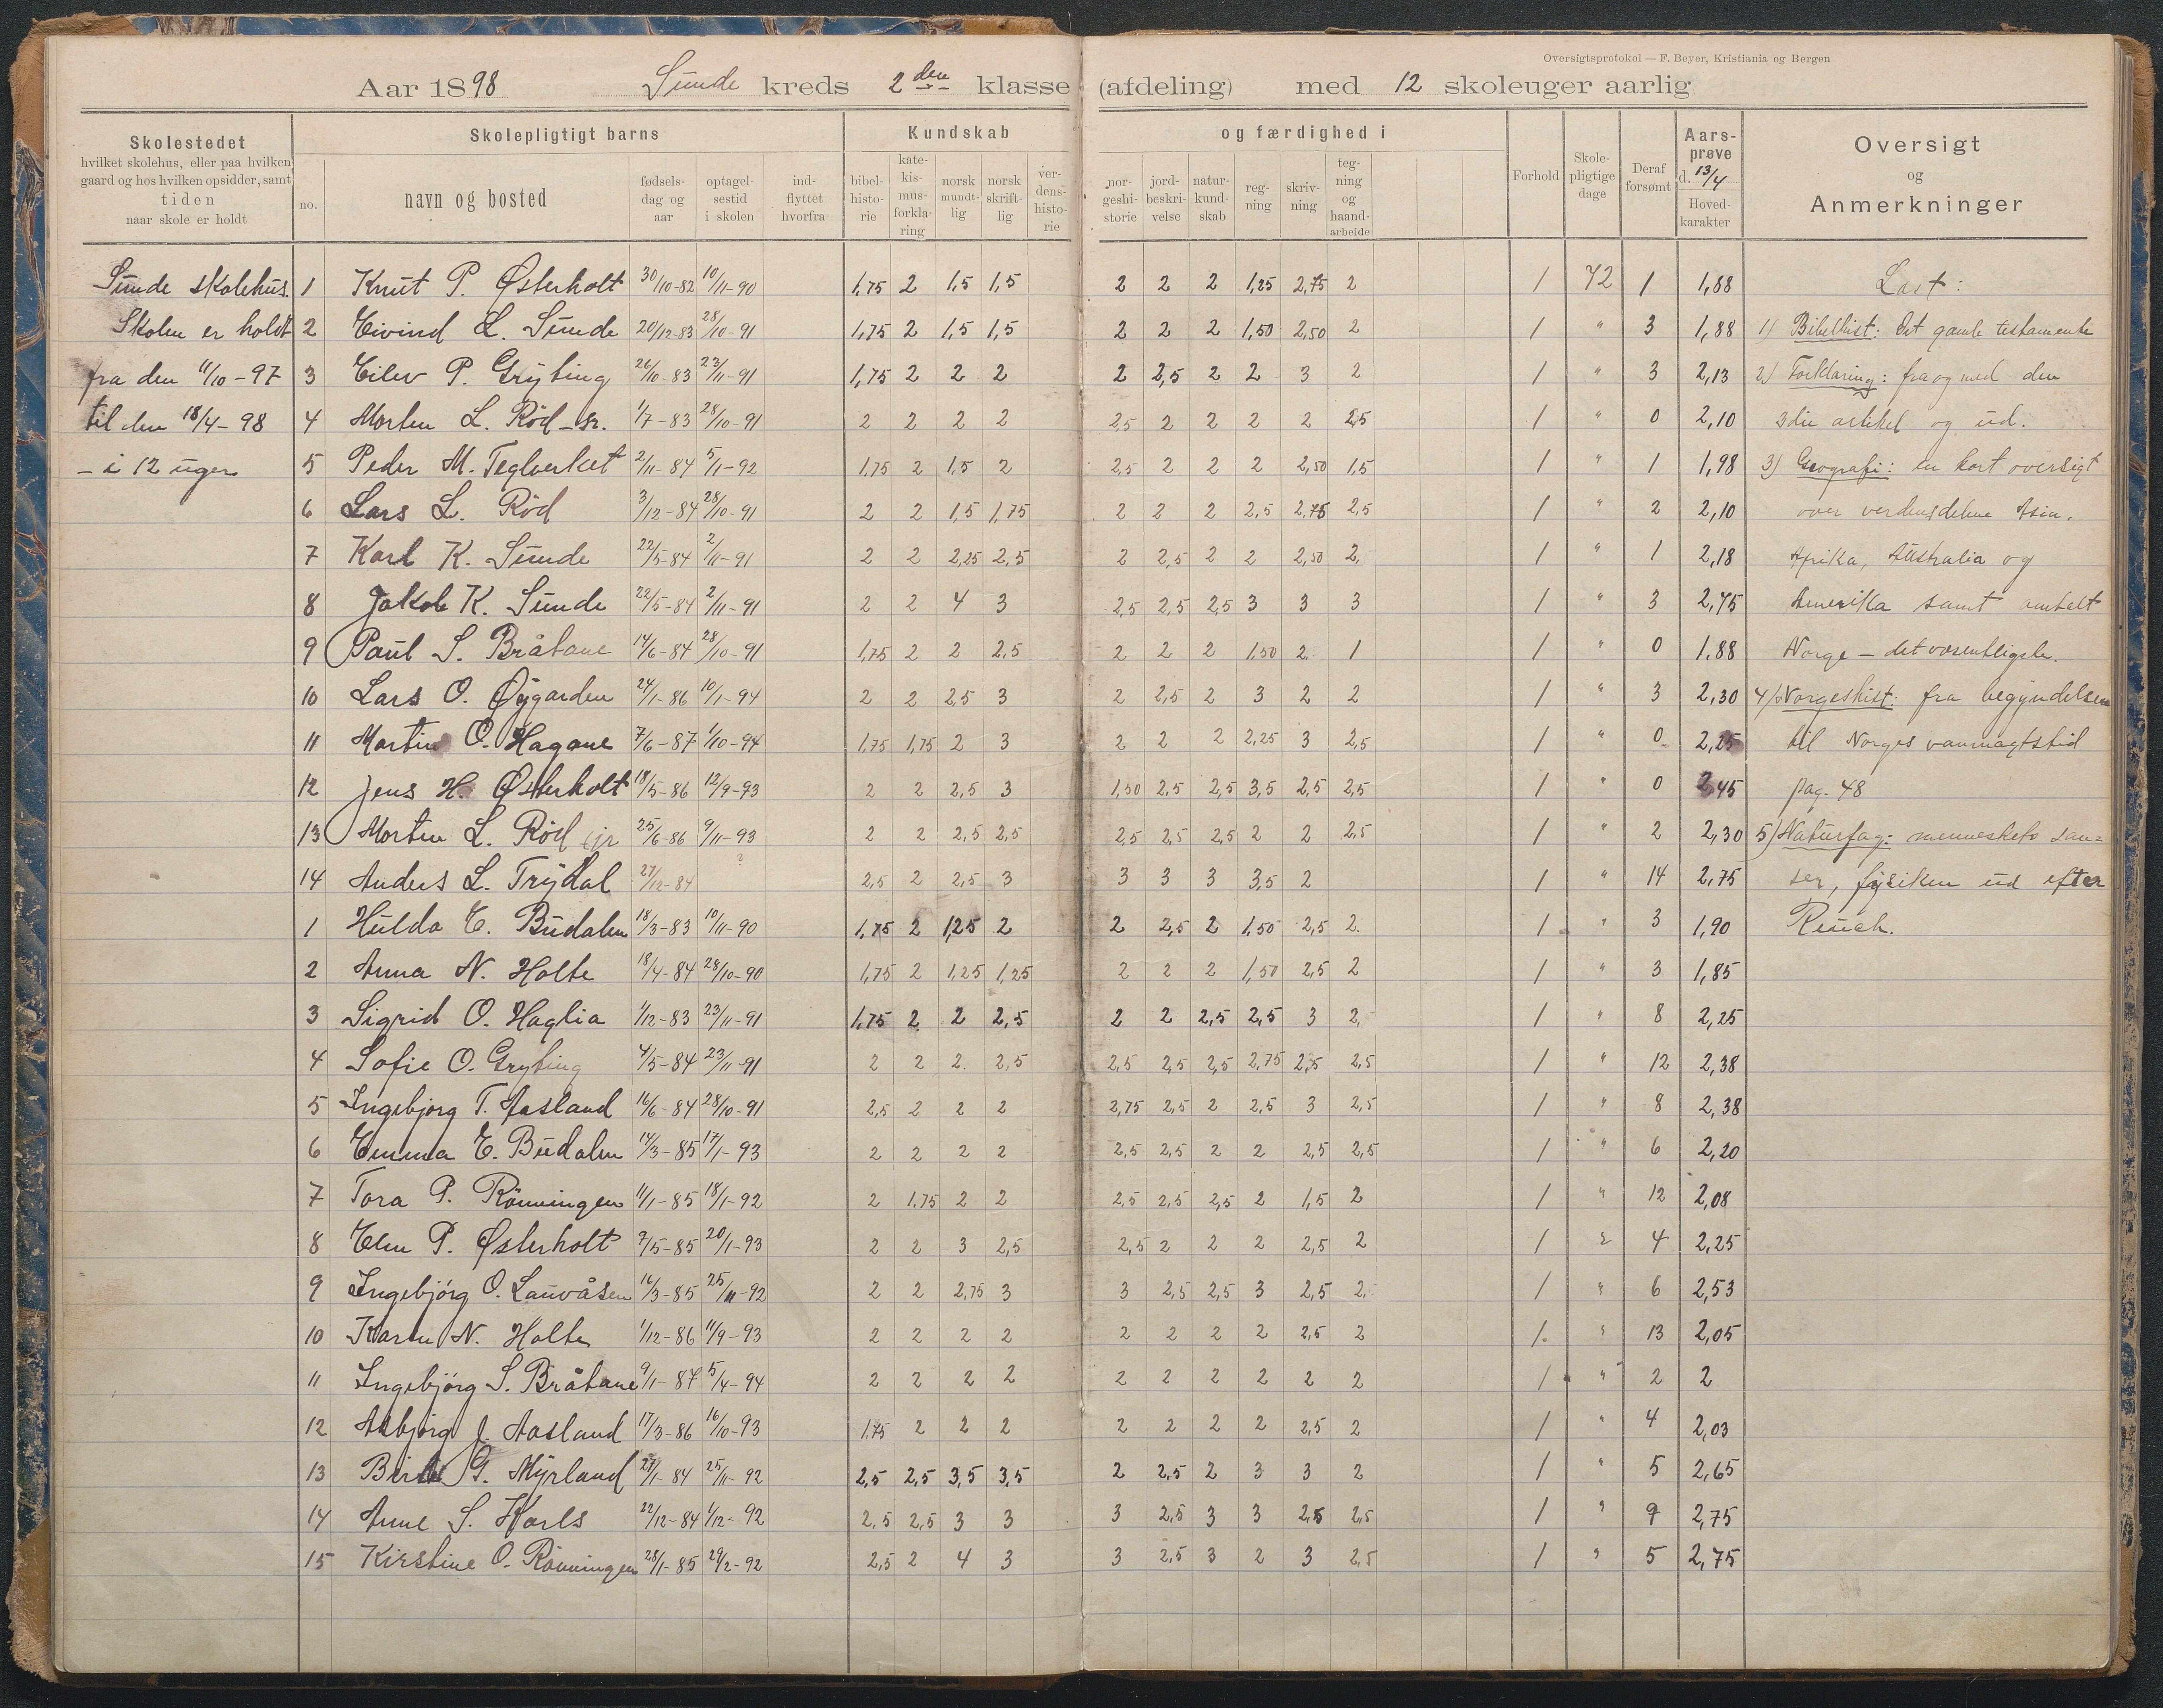 Oversigtsprotokol — F. Beyer, Kristiania og Bergen
Aar 1898 Sunde kreds 2den klasse (afdeling) med 12 skoleuger aarlig
Skolestedet
hvilket skolehus, eller paa hvilken
gaard og hos hvilken opsidder, samt
tiden
naar skole er holdt
Skolepligtigt barns
no.
navn og bosted
fødsels-
dag og
aar
optagel-
sestid
i skolen
ind-
flyttet
hvorfra
Kundskab og færdighed i
bibel-
histo-
rie
kate-
kis-
mus-
forkla-
ring
norsk
mundt-
lig
norsk
skrift-
lig
ver-
dens-
histo-
rie
nor-
geshi-
storie
jord-
beskri-
velse
natur-
kund-
skab
reg-
ning
skriv-
ning
teg-
ning
og
haand-
arbeide
Forhold
Skole-
pligtige
dage
Deraf
forsømt
Aars-
prøve
d. 13/4
Hoved-
karakter
Oversigt
og
Anmerkninger
Sunde skolehus.
Skolen er holdt
fra den 11/10 - 97
til den 18/4 - 98
- i 12 uger
1 Knut P. Østerholt 30/10-82 10/11-90 1,75 2 1,5 1,5 2 2 2 1,25 2,75 2 1 72 1 1,88
2 Eivind L. Sunde 20/12-83 28/10-91 1,75 2 1,5 1,5 2 2 2 1,50 2,50 2 1 " 3 1,88
3 Eilev P. Gryting 26/10-83 23/11-91 1,75 2 2 2 2 2,5 2 2 3 2 1 " 3 2,13
4 Morten L. Röd - sr. 1/7-83 28/10-91 2 2 2 2 2,5 2 2 2 2 2,5 1 " 0 2,10
5 Peder M. Teglverket 2/11-84 5/1-92 1,75 2 1,5 2 2,5 2 2 2 2,50 1,5 1 " 1 1,98
6 Lars L. Röd 3/12-84 28/10-91 2 2 1,5 1,75 2 2 2 2,5 2,75 2,5 1 " 2 2,10
7 Karl K. Sunde 22/5-84 2/11-91 2 2 2,25 2,5 2 2,5 2 2 2,50 2, 1 " 1 2,18
8 Jakob K. Sunde 22/5-84 2/11-91 2 2 4 3 2,5 2,5 2,5 3 3 3 1 " 3 2,75
9 Paul S. Bråtane 14/6-84 28/10-91 1,75 2 2 2,5 2 2 2 1,50 2. 1 1 " 0 1.88
10 Lars O. Øygarden 24/1-86 10/1-94 2 2 2,5 3 2 2,5 2 3 2 2 1 " 3 2,30
11 Martin O. Hagane 7/6-87 1/10-94 1,75 1,75 2 3 2 2 2 2,25 3 2,5 1 " 0 2,25
12 Jens H. Østerholt 18/5-86 12/9-93 2 2 2,5 3 1,50 2,5 2,5 3,5 2,5 2,5 1 " 0 2,45
13 Morten L. Röd jr 25/6-86 9/11-93 2 2 2,5 2,5 2,5 2,5 2,5 2 2 2,5 1 " 2 2,30
14 Anders L. Trydal 27/12-84 ? 2,5 2 2,5 3 3 3 3 3,5 2 1 " 14 2,75
1 Hulda E. Budalen 18/3-83 10/11-90 1,75 2 1,25 2 2 2,5 2 1,50 2,5 2. 1 " 3 1,90
2 Anna N. Holte 18/4-84 28/10-90 1,75 2 1,25 1,25 2 2 2 1,50 2,5 2 1 " 3 1,85
3 Sigrid O. Haglia 1/12-83 23/11-91 1,75 2 2 2,5 2 2 2,5 2,5 3 2, 1 " 8 2,25
4 Sofie O. Gryting 4/5-84 23/11-91 2 2 2. 2,5 2,5 2,5 2,5 2,75 2,5 2,5 1 " 12 2,38
5 Ingebjørg T. Aasland 16/6-84 28/10-91 2,5 2 2 2 2,75 2,5 2 2,5 3 2,5 1 " 8 2,38
6 Emma E. Budalen 14/3-85 17/1-93 2 2 2 2 2,5 2,5 2 2 2,5 2,5 1 " 6 2,20
7 Tora P. Rönningen 11/1-85 18/1-92 2 1,75 2 2 2,5 2,5 2,5 2 1,5 2 1 " 12 2,08
8 Elen P. Østerholt 9/5-85 20/1-93 2 2 3 2,5 2,5 2 2 2 2,5 2 1 " 4 2,25
9 Ingebjörg O. Lauvåsen 16/3-85 25/11-92 2 2 2,75 3 3 2,5 2,5 3 2,5 2. 1 " 6 2,53
10 Karen N. Holte 1/12-86 11/9-93 2 2 2 2 2 2 2 2 2,5 2 1. " 13 2,05
11 Ingebjörg S. Bråtane 9/1-87 5/4-94 2 2 2 2 2 2 2 2 2 2 1 " 2 2
12 Asbjørg J. Aasland 17/3-86 16/10-93 1,75 2 2 2 2 2 2 2 2,5 2 1 " 4 2,03
13 Berte G. Myrland 27/1-84 25/11-92 2,5 2,5 3,5 3,5 2 2,5 2 3 3 2 1 " 5 2,65
14 Anne S. Karls 22/12-84 1/12-92 2,5 2,5 3 3 3 2,5 3 3 2,5 2,5 1 " 9 2,75
15 Kirstine O. Rönningen 28/1-85 29/2-92 2,5 2 4 3 3 2,5 3 2 3 2,5 1 " 5 2,75
Læst:
1) Bibelhist: Det gamle testamente
2) Forklaring: fra og med den
3die artikel og ud.
3) Geografi: en kort oversigt
over verdensdelene Asia,
Afrika, Australia og
Amerika samt omtalt
Norge - det væsentligste.
4) Norgeshist: fra begyndelsen
til Norges vanmagtstid
pag. 48
5) Naturfag: menneskets san=
ser, fysiken ud efter